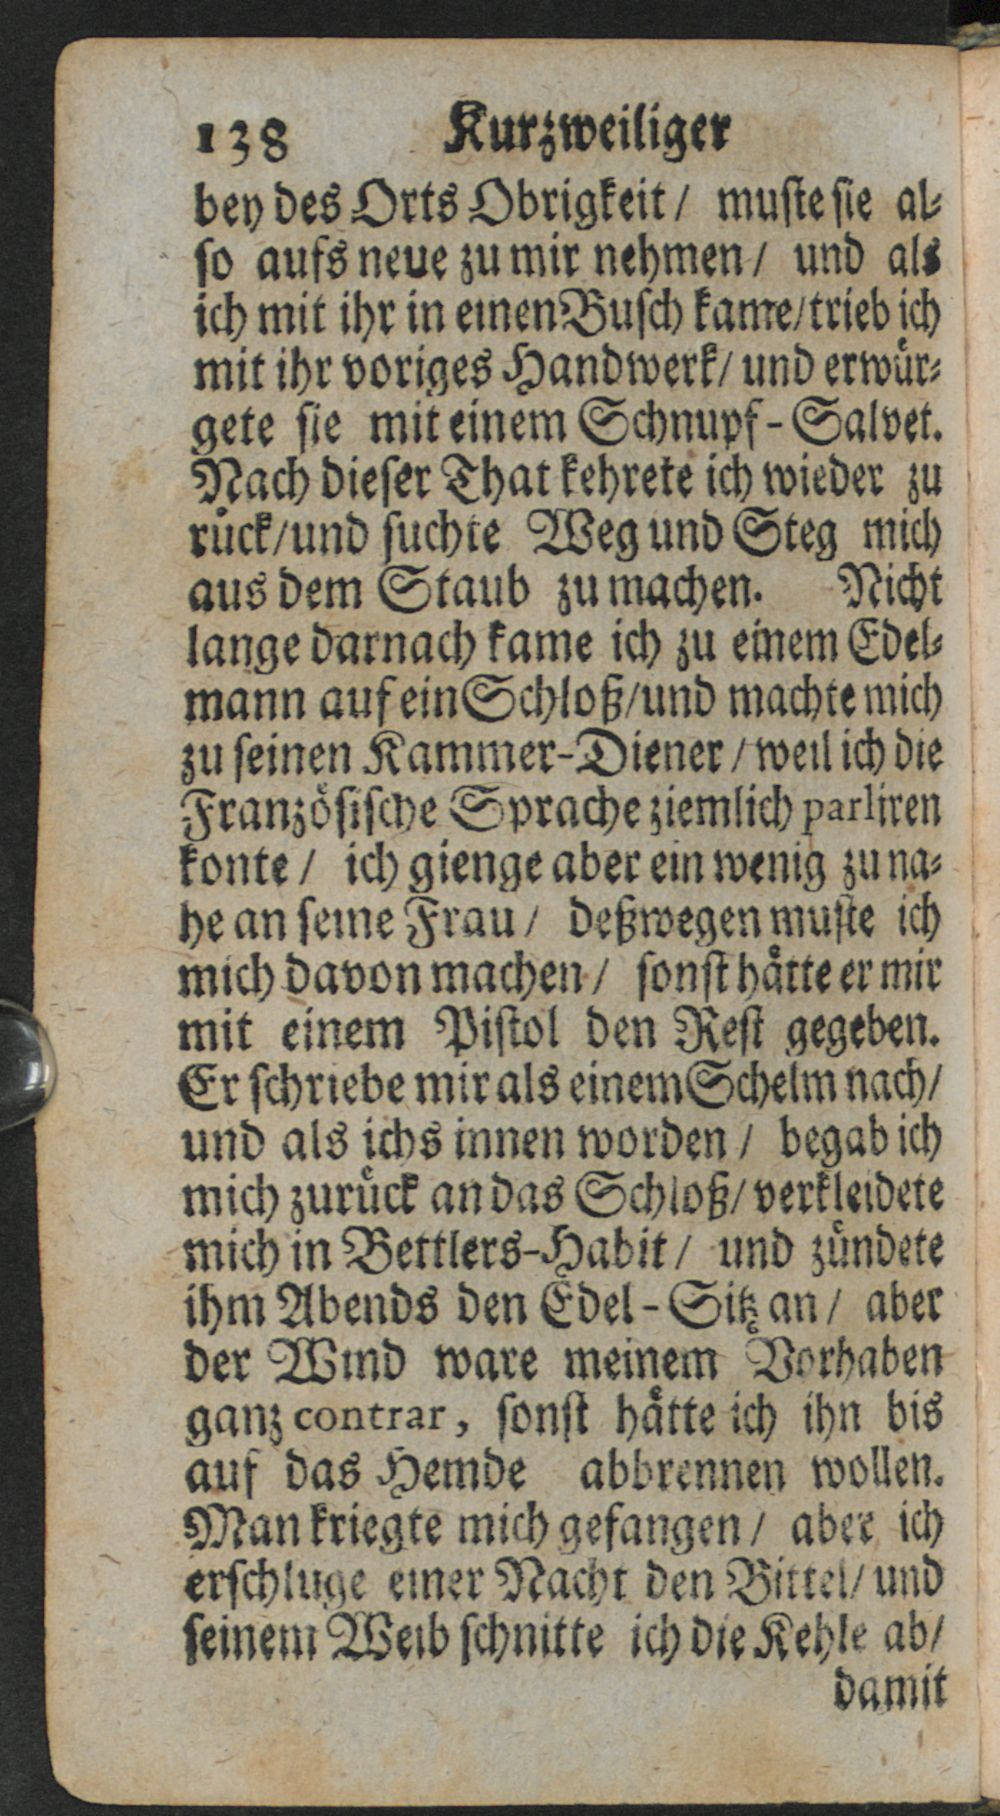 138 Kurzweiliger
bey des Orts Obrigkeit / muſte ſie al⸗
ſo aufs neue zu mir nehmen / und als
ich mit ihr in einen Buſch kame / trieb ich
mit ihr voriges Handwerk / und erwuͤr⸗
gete ſie mit einem Schnupf-Salvet.
Nach dieſer That kehrete ich wieder zu
ruͤck / und ſuchte Weg und Steg mich
aus dem Staub zu machen. Nicht
lange darnach kame ich zu einem Edel⸗
mann auf ein Schloß / und machte mich
zu ſeinen Kammer-Diener / weil ich die
Franzoͤſiſche Sprache ziemlich parliren
konte / ich gienge aber ein wenig zu na⸗
he an ſeine Frau / deßwegen muſte ich
mich davon machen / ſonſt haͤtte er mir
mit einem Piſtol den Reſt gegeben.
Er ſchriebe mir als einem Schelm nach /
und als ichs innen worden / begab ich
mich zuruͤck an das Schloß / verkleidete
mich in Bettlers-Habit / und zuͤndete
ihm Abends den Edel-Sitz an / aber
der Wind ware meinem Vorhaben
ganz contrar, ſonſt haͤtte ich ihn bis
auf das Hemde abbrennen wollen.
Man kriegte mich gefangen / aber ich
erſchluge einer Nacht den Bittel / und
ſeinem Weib ſchnitte ich die Kehle ab /
damit